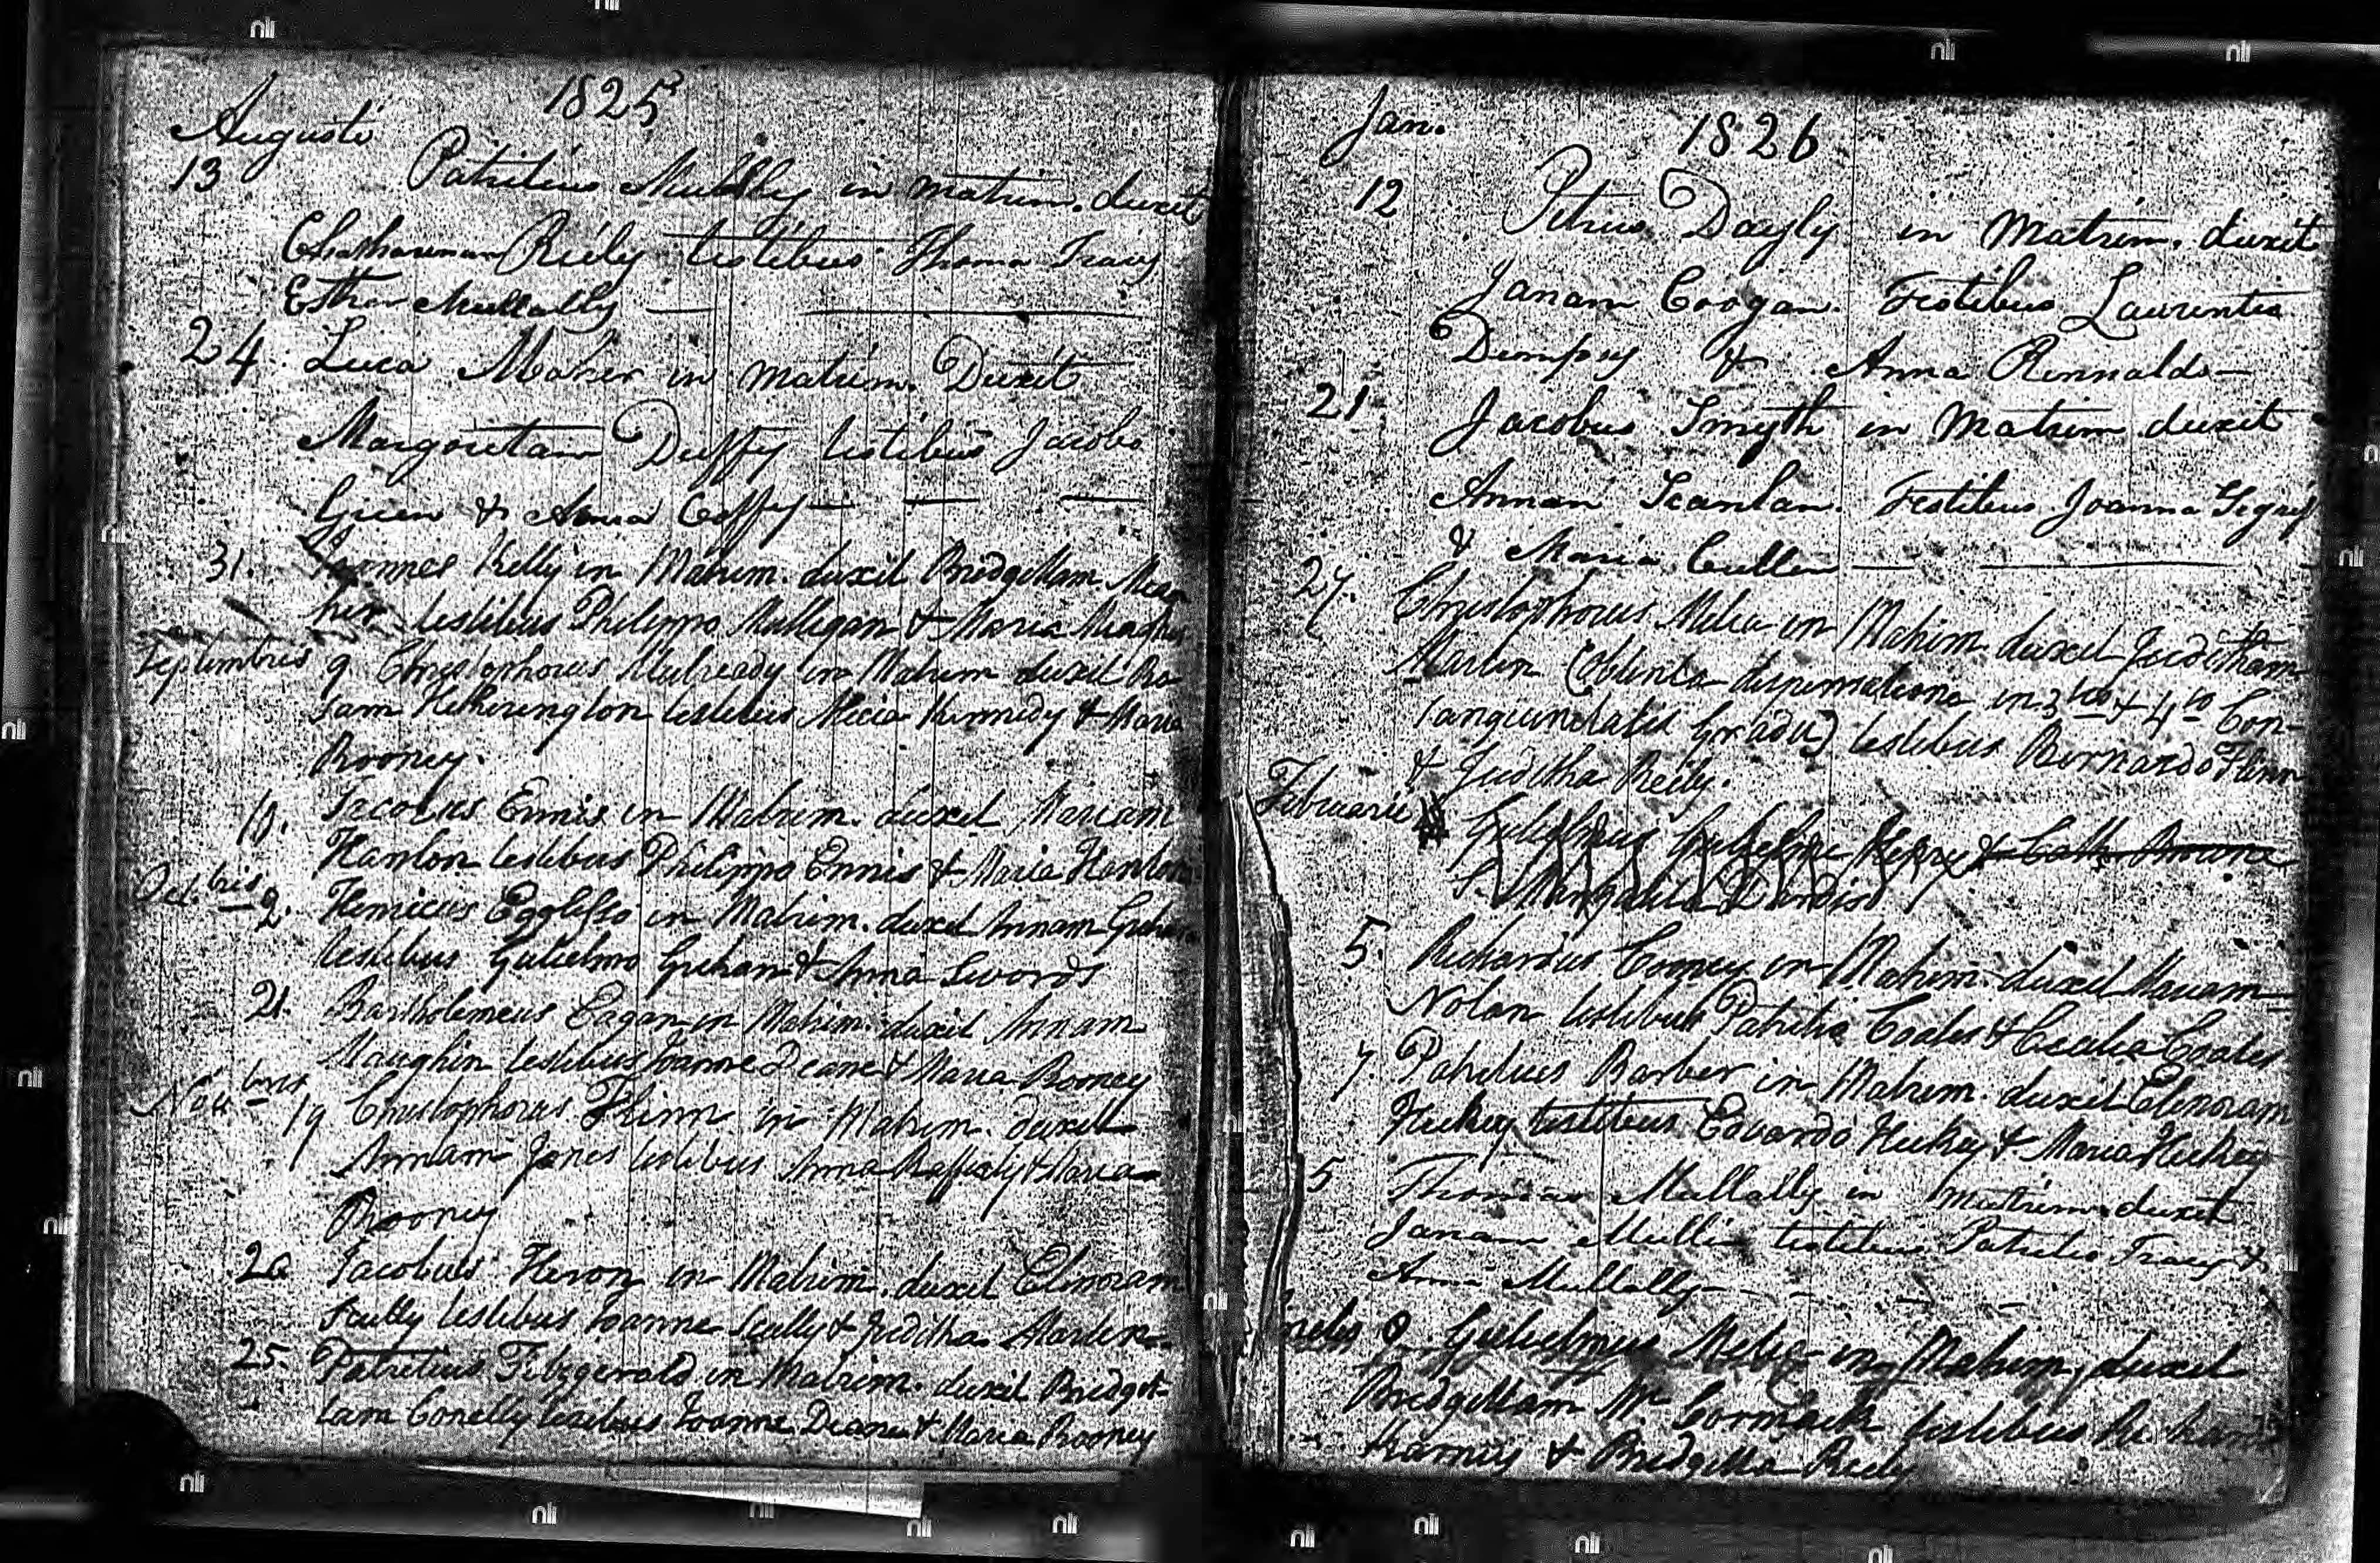 1825
Augusti
13 Patritius Mullally in matrim. duxit
Chatharinam Reily testibus Thoma Tracy
Esther Mullally
24. Luca Maher in matrim. Duxit
Margaretam Duffy testibus Jacobo
Green & Anna Coffy
31. Joannes Kelly in Matrim. duxit Bridgittam Mea
her testibus Philippo Mulligan & Maria Meagher
Septembris 9 Christophorus Mulready in Matrim duxit Ro
sam Hetherington testibus Alicia Kennedy & Maria
Rooney.
10. Jacobus Ennis in Matrim. duxit Mariam
Hanlon testibus Philippo Ennis & Maria Hanlon
Oct.bris 2. Henricus Egglesso in Matrim. duxit Annam Grehan
testibus Gulielmo Grehan & Anna Swords
21. Bartholemeus Eagan in Matrim. duxit Annam
Maughin testibus Joanne Deane & Maria Rooney
Nov.bris 19 Christophorus Flinn in Matrim. duxit
Annam Jones testibus Anna Rafferty & Maria
Rooney
20 Jacobus Heron in Matrim. duxit Elinoram
Scully testibus Joanne Scully & Juditha Marten
25. Patritius Fitzgerald in Matrim. duxit Bridget
tam Conelly testibus Joanne Deane & Maria Rooney
Jan. 1826
12 Petrus Dayly in Matrim. duxit
Janam Coogan. Testibus Laurentio
Dempsey & Anna Rennalds
21 Jacobus Smyth in Matrim duxit
Annam Scanlan. Testibus Joanna
& Maria Cullen
27. Christophorus Melia in Matrim duxit Juditham
Martin (obtenta dispensatione in 3tio & 4to Con-
sanguinitatis Gradu) testibus Bernardo Flinn
& Juditha Reily.
Februarii
5. Richardus Cooney in Matrim. duxit Mariam
Nolan testibus Patritio Coates & Cecilia Coates
7. Patritius Barber in Matrim. duxit Elinoram
Hickey testibus Edvardo Hickey & Maria Hickey
5 Thomas Mullally in matrim. duxit
Janam Mullin testibus Patritio Tracy &
Anna Mullally
8 Gulielmus Melia in Matrim, duxit
Bridgittam Mc Cormack testibus
& Bridgitta Reily
nli